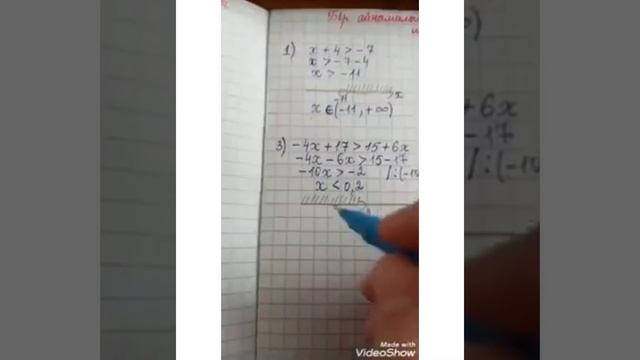 Бір айнымалы
1) x + 4 > -7
x > -7 - 4
x > -11
-11 x
x ∈ (-11, +∞)
3) -4x + 17 > 15 + 6x
-4x - 6x > 15 - 17
-10x > -2 / : (-10
x < 0,2
+ 6x
- 17
Made with
VideoShow